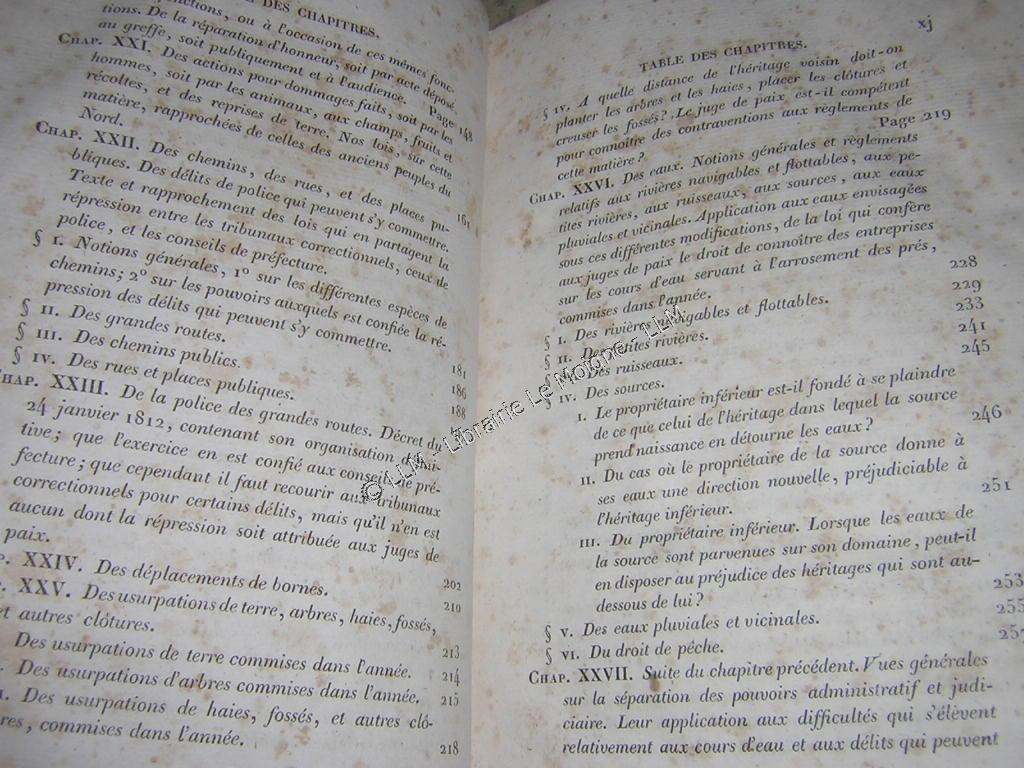 E DES CHAPITRES.
fonctions, ou à l'occasion de ces mêmes fonc-
tions. De la réparation d'honneur, soit par acte déposé
au greffe, soit publiquement et à l'audience. Page 148
Chap. XXI. Des actions pour dommages faits, soit par les
hommes, soit par les animaux, aux champs, fruits et
récoltes, et des reprises de terre. Nos lois, sur cette
matière, rapprochées de celles des anciens peuples du
Nord. 161
Chap. XXII. Des chemins, des rues, et des places pu-
bliques. Des délits de police qui peuvent s'y commettre.
Texte et rapprochement des lois qui en partagent la
répression entre les tribunaux correctionnels, ceux de
police, et les conseils de préfecture.
§ I. Notions générales, 1º sur les différentes espèces de
chemins; 2º sur les pouvoirs auxquels est confiée la ré-
pression des délits qui peuvent s'y commettre.
§ II. Des grandes routes. 181
§ III. Des chemins publics. 186
§ IV. Des rues et places publiques. 188
Chap. XXIII. De la police des grandes routes. Décret du
24 janvier 1812, contenant son organisation
tive; que l'exercice en est confié aux conseils de pré-
fecture; que cependant il faut recourir aux tribunaux
correctionnels pour certains délits, mais qu'il n'en est
aucun dont la répression soit attribuée aux juges de
paix.
P. XXIV. Des déplacements de bornes. 202
. XXV. Des usurpations de terre, arbres, haies, fossés, 210
et autres clôtures.
Des usurpations de terre commises dans l'année. 213
. Des usurpations d'arbres commises dans l'année. 214
I. Des usurpations de haies, fossés, et autres clô- 215
res, commises dans l'année.
218
xj
TABLE DES CHAPITRES.
§ IV. A quelle distance de l'héritage voisin doit-on
planter les arbres et les haies, placer les clôtures et
creuser les fossés? Le juge de paix est-il compétent
pour connoître des contraventions aux règlements de
cette matière? Page 219
Chap. XXVI. Des eaux. Notions générales et règlements
relatifs aux rivières navigables et flottables, aux pe-
tites rivières, aux ruisseaux, aux sources, aux eaux
pluviales et vicinales. Application aux eaux envisagées
sous ces différentes modifications, de la loi qui confère
aux juges de paix le droit de connoître des entreprises
sur les cours d'eau servant à l'arrosement des prés,
commises dans l'année. 228
§ I. Des rivières navigables et flottables. 229
§ II. Des petites rivières. 233
§ III. Des ruisseaux. 241
§ IV. Des sources. 245
I. Le propriétaire inférieur est-il fondé à se plaindre
de ce que celui de l'héritage dans lequel la source
prend naissance en détourne les eaux? 246
II. Du cas où le propriétaire de la source donne à
ses eaux une direction nouvelle, préjudiciable à
l'héritage inférieur. 251
III. Du propriétaire inférieur. Lorsque les eaux de
la source sont parvenues sur son domaine, peut-il
en disposer au préjudice des héritages qui sont au-
dessous de lui? 253
§ V. Des eaux pluviales et vicinales.
§ VI. Du droit de pêche.
Chap. XXVII. Suite du chapitre précédent. Vues générales
sur la séparation des pouvoirs administratif et judi-
ciaire. Leur application aux difficultés qui s'élèvent
relativement aux cours d'eau et aux délits qui peuvent
© LLM - Librairie Le Moigne - LLM